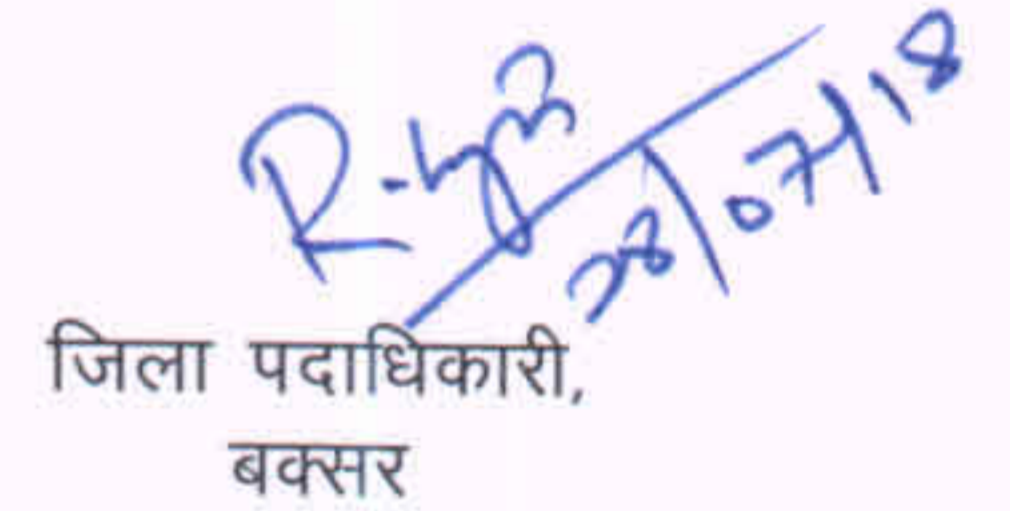 28/07/18
जिला पदाधिकारी,
बक्सर